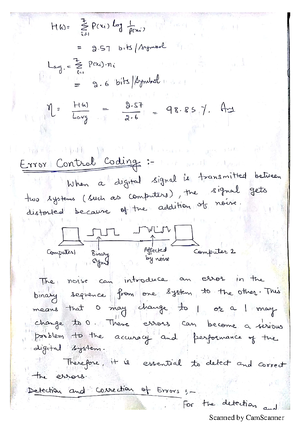 H(x) = Σ P(xi) log 1/P(xi)
= 2.57 bits/symbol
Lavg. = Σ P(xi).ni
= 2.6 bits/symbol
η = H(x)/Lavg = 2.57/2.6 = 98.85 %. Ans
Error Control Coding :-
When a digital signal is transmitted between
two systems (such as computers), the signal gets
distorted because of the addition of noise.
Computer1 Binary signal Affected by noise Computer 2
The noise can introduce an error in the
binary sequence from one system to the other. This
means that 0 may change to 1 or a 1 may
change to 0. These errors can become a serious
problem to the accuracy and performance of the
digital system.
Therefore, it is essential to detect and correct
the errors.
Detection and Correction of Errors :-
For the detection and
Scanned by CamScanner